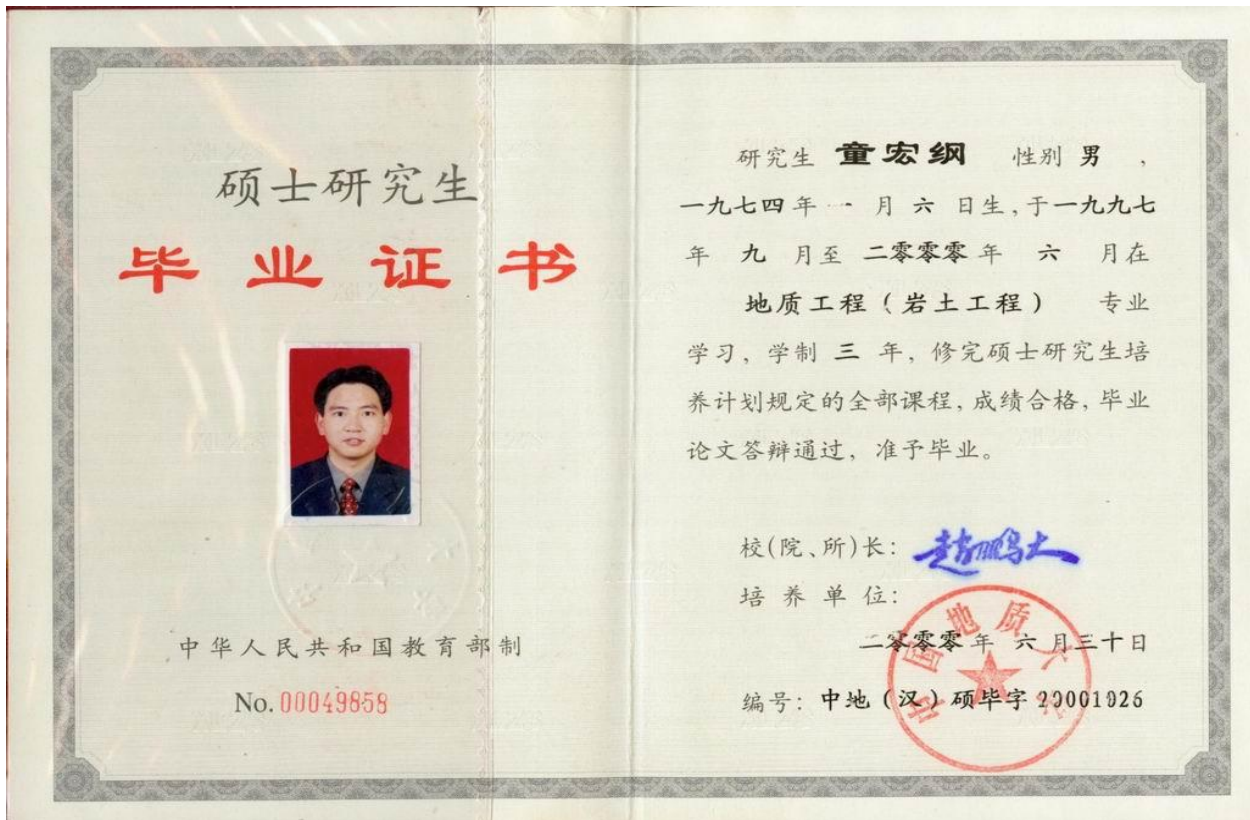 硕士研究生
毕业证书
中华人民共和国教育部制
No. 00049858
研究生 童宏纲 性别 男 ，
一九七四年 一 月 六 日生，于一九九七
年 九 月至 二零零零 年 六 月在
地质工程（岩土工程） 专业
学习，学制 三 年，修完硕士研究生培
养计划规定的全部课程，成绩合格，毕业
论文答辩通过，准予毕业。
校(院、所)长： 赵鹏大
培养单位：
中国地质大学
二零零零 年 六 月三十日
编号：中地（汉）硕毕字 20001026